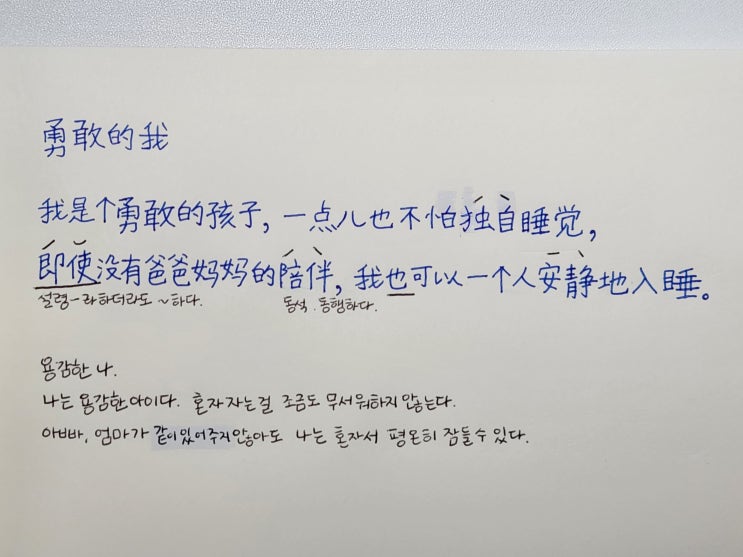 勇敢的我
我是个勇敢的孩子，一点儿也不怕独自睡觉，
即使没有爸爸妈妈的陪伴，我也可以一个人安静地入睡。
설령-라하더라도 ~하다. 동석. 동행하다.
용감한 나.
나는 용감한아이다. 혼자자는걸 조금도 무서워하지 않는다.
아빠, 엄마가 같이있어주지않아도 나는 혼자서 평온히 잠들수 있다.